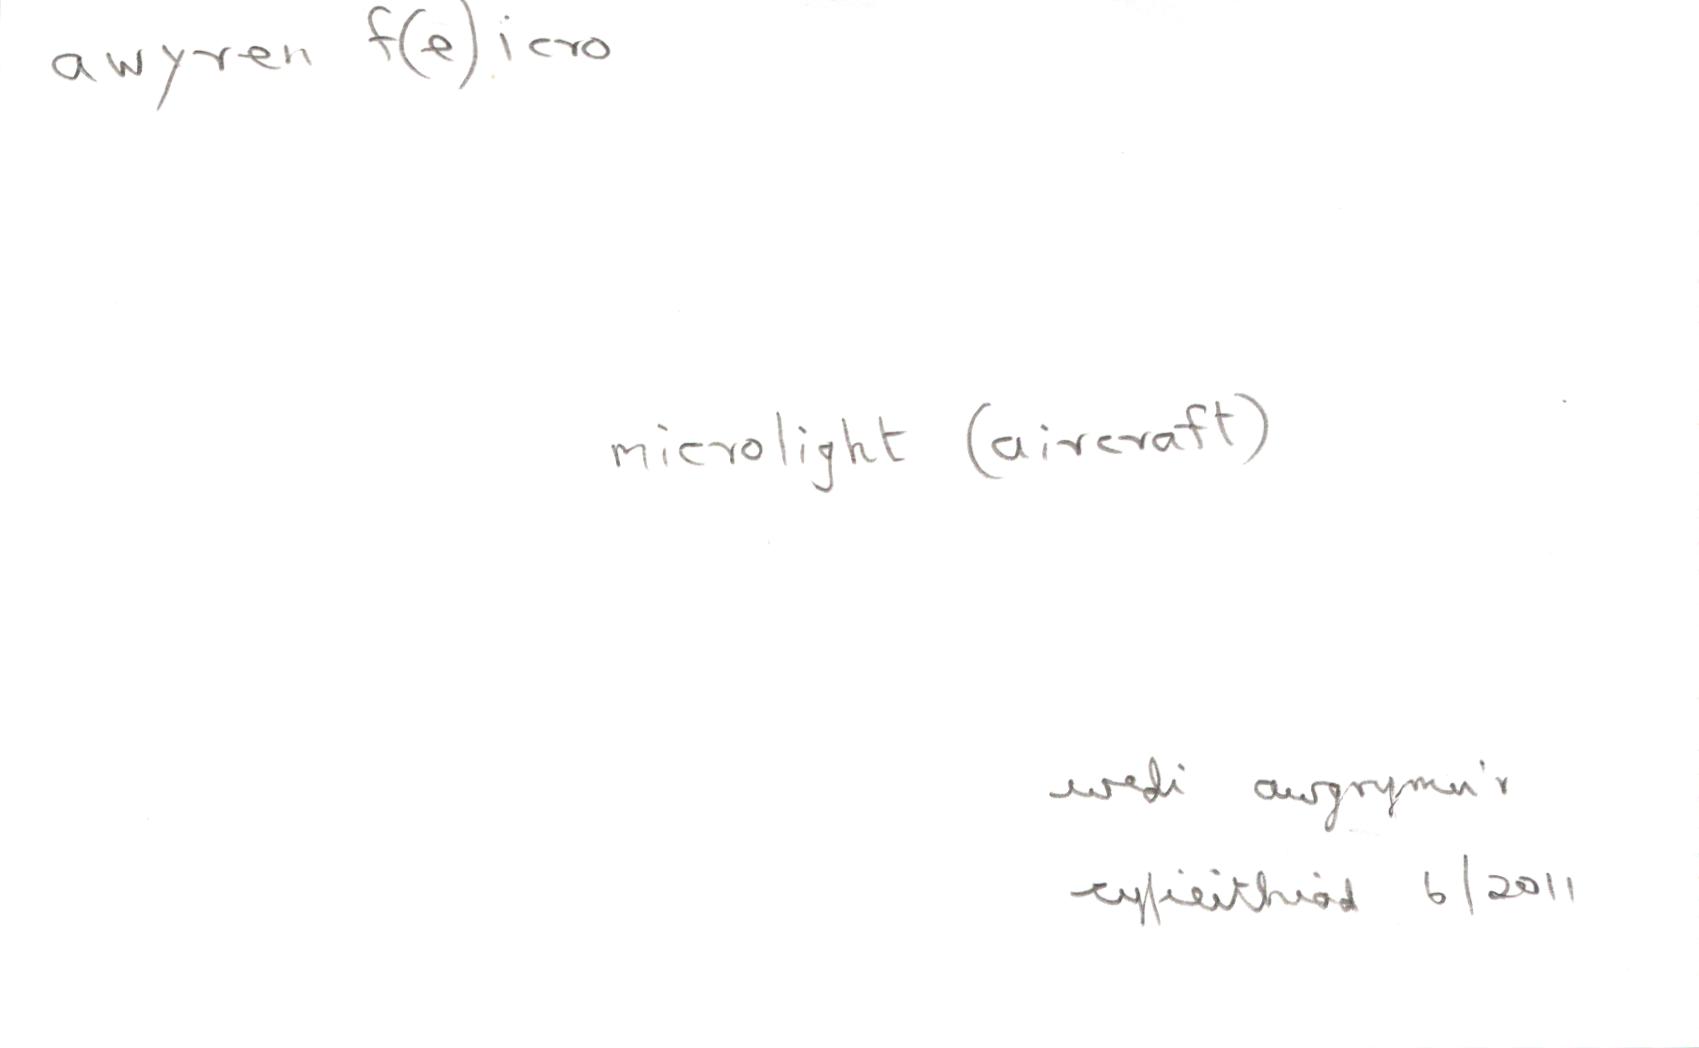 awyren f(e)icro
microlight (aircraft)
wedi awgrymu'r
cyfieithiad 6/2011